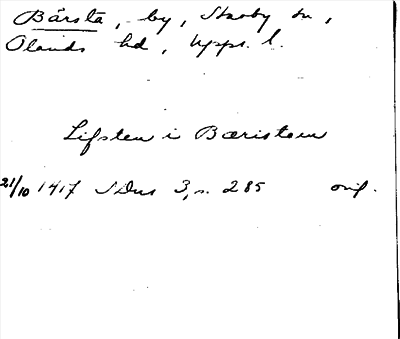 Bärsta, by, Skäfthammar sn,
Olands hd, Upps. l.
Lifsten i Bæristom
21/10 1417 SDns 3, s. 285 orig.